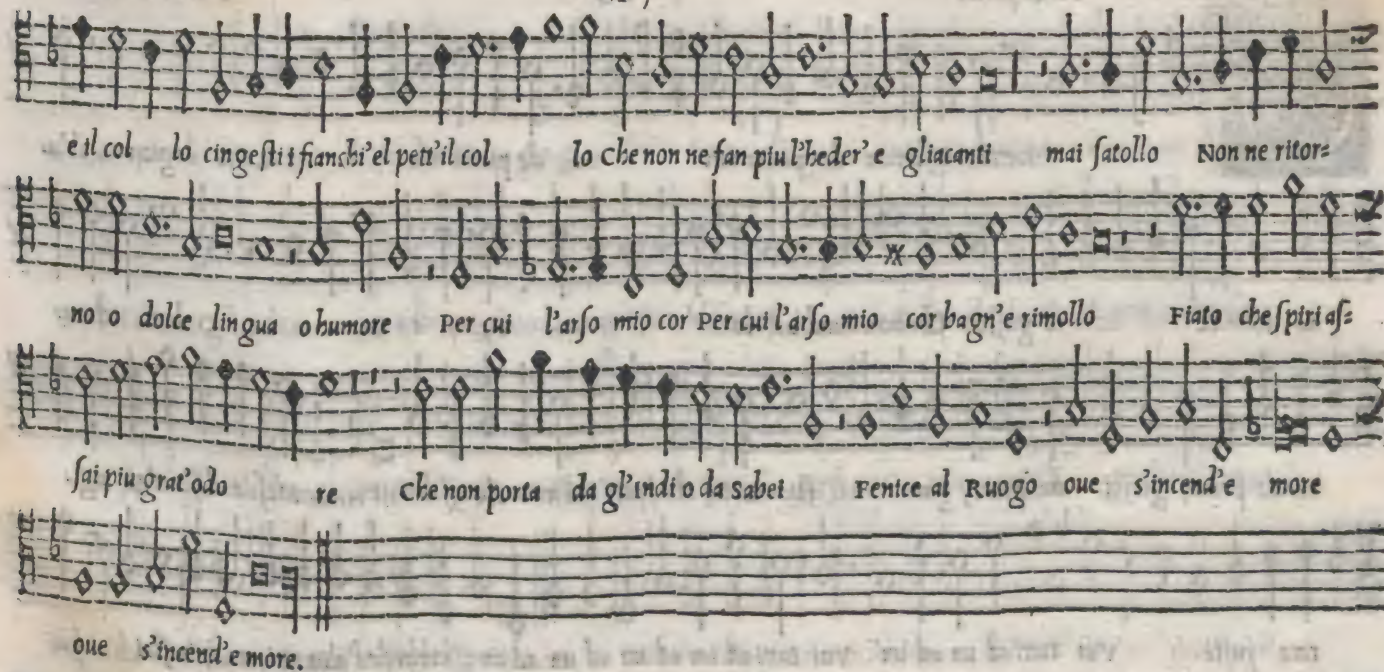 e il col lo cingeſti i fianchi'el pett'il col lo Che non ne fan piu l'heder' e gliacanti mai ſatollo Non ne ritor=
no o dolce lingua o humore Per cui l'arſo mio cor Per cui l'arſo mio cor bagn'e rimollo Fiato che ſpiri aſ=
ſai piu grat'odo re Che non porta da gl'indi o da Sabei Fenice al Ruogo oue s'incend'e more
oue s'incend'e more.